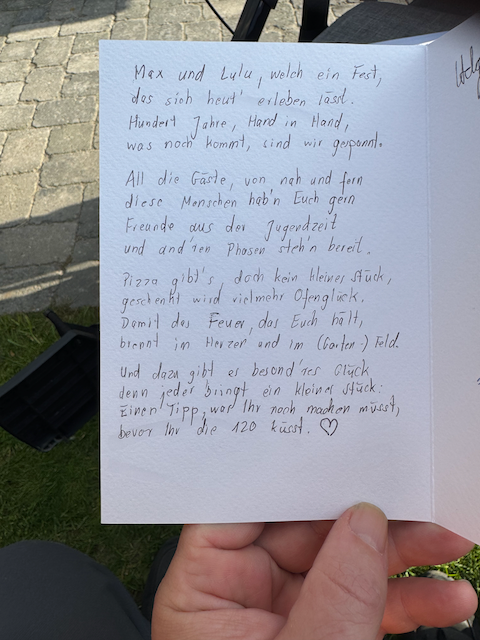 Max und Lulu, welch ein Fest,
das sich heut' erleben lässt.
Hundert Jahre, Hand in Hand,
was noch kommt, sind wir gespannt.
All die Gäste, von nah und fern
diese Menschen hab'n Euch gern
Freunde aus der Jugendzeit
und and'ren Phasen steh'n bereit.
Pizza gibt's, doch kein kleines Stück,
geschenkt wird vielmehr Ofenglück.
Damit das Feuer, das Euch hält,
brennt im Herzen und im (Garten-) Feld.
Und dazu gibt es besond'res Glück
denn jeder bringt ein kleines Stück:
Einen Tipp, was Ihr noch machen müsst,
bevor Ihr die 120 küsst. ♡